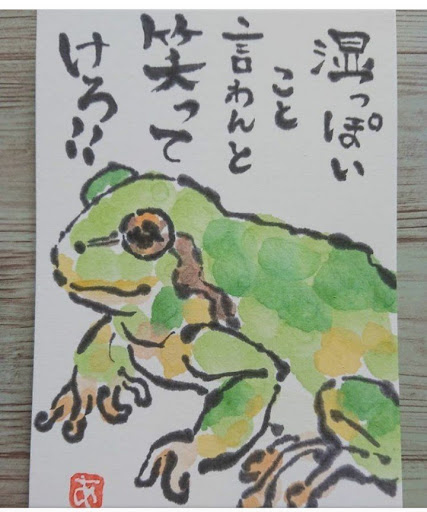 湿っぽい
こと
言わんと
笑って
けろ!!
あ